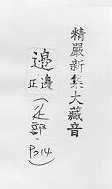 精嚴新集大藏音
邊
正邊
(辵部.
P.214.